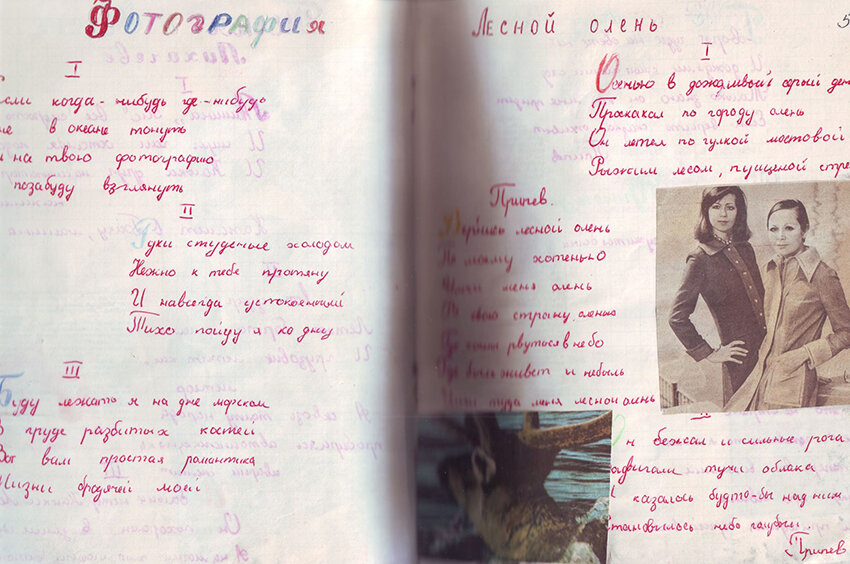 Фотография
I
сли когда-нибудь где-нибудь
не в океане тонуть
на твою фотографию
позабуду взглянуть
II
Руки студеные холодом
Нежно к тебе протяну
И навсегда успокоенный
Тихо пойду я ко дну
III
Буду лежать я на дне морском
В груде разбитых костей
Вот вам простая романтика
Жизни бродячей моей
Лесной олень
5
I
Осенью в дождливый серый ден
Проскакал по городу олень
Он летел по гулкой мостовой
Рыжим лесом, пущеной стре
Припев.
Вернись лесной олень
По моему хотенью
Умчи меня олень
В свою страну оленью
Где сосны рвутся в небо
Где быль живет и небыль
Умчи туда меня лесной олень
II
Он бежал и сильные рога
адивали тучи облака
И казалось будто-бы над ним
Становилось небо голубы.
Припев